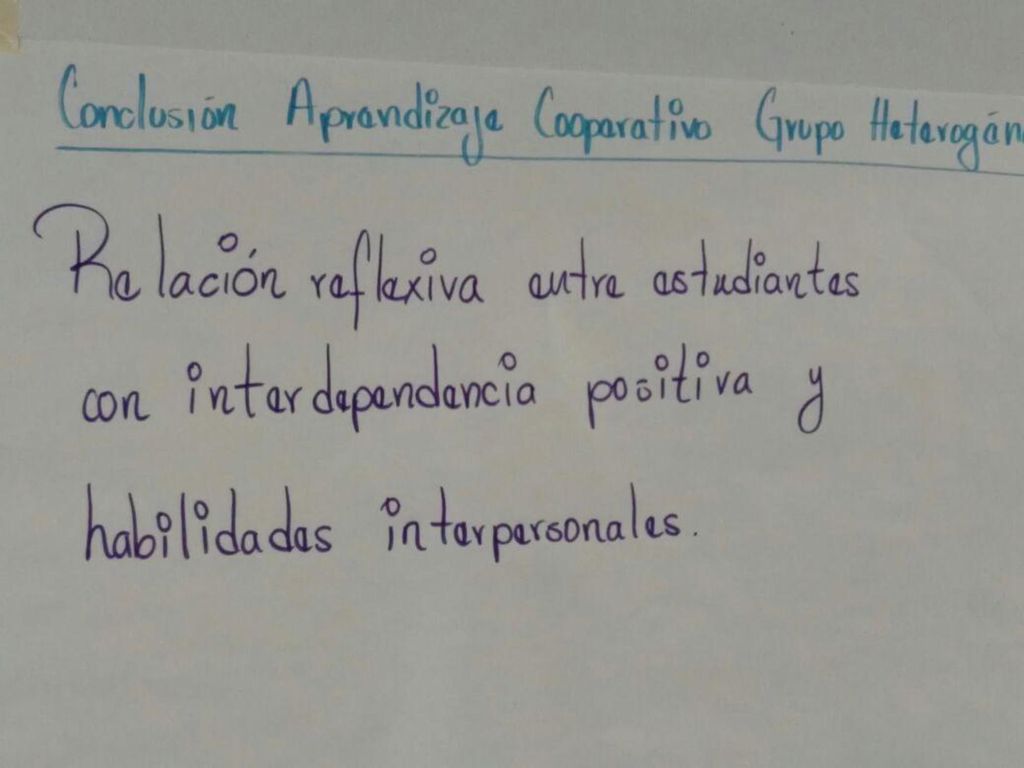 Conclusión Aprendizaje Cooperativo Grupo Heterogén
Relación reflexiva entre estudiantes
con interdependencia positiva y
habilidades interpersonales.